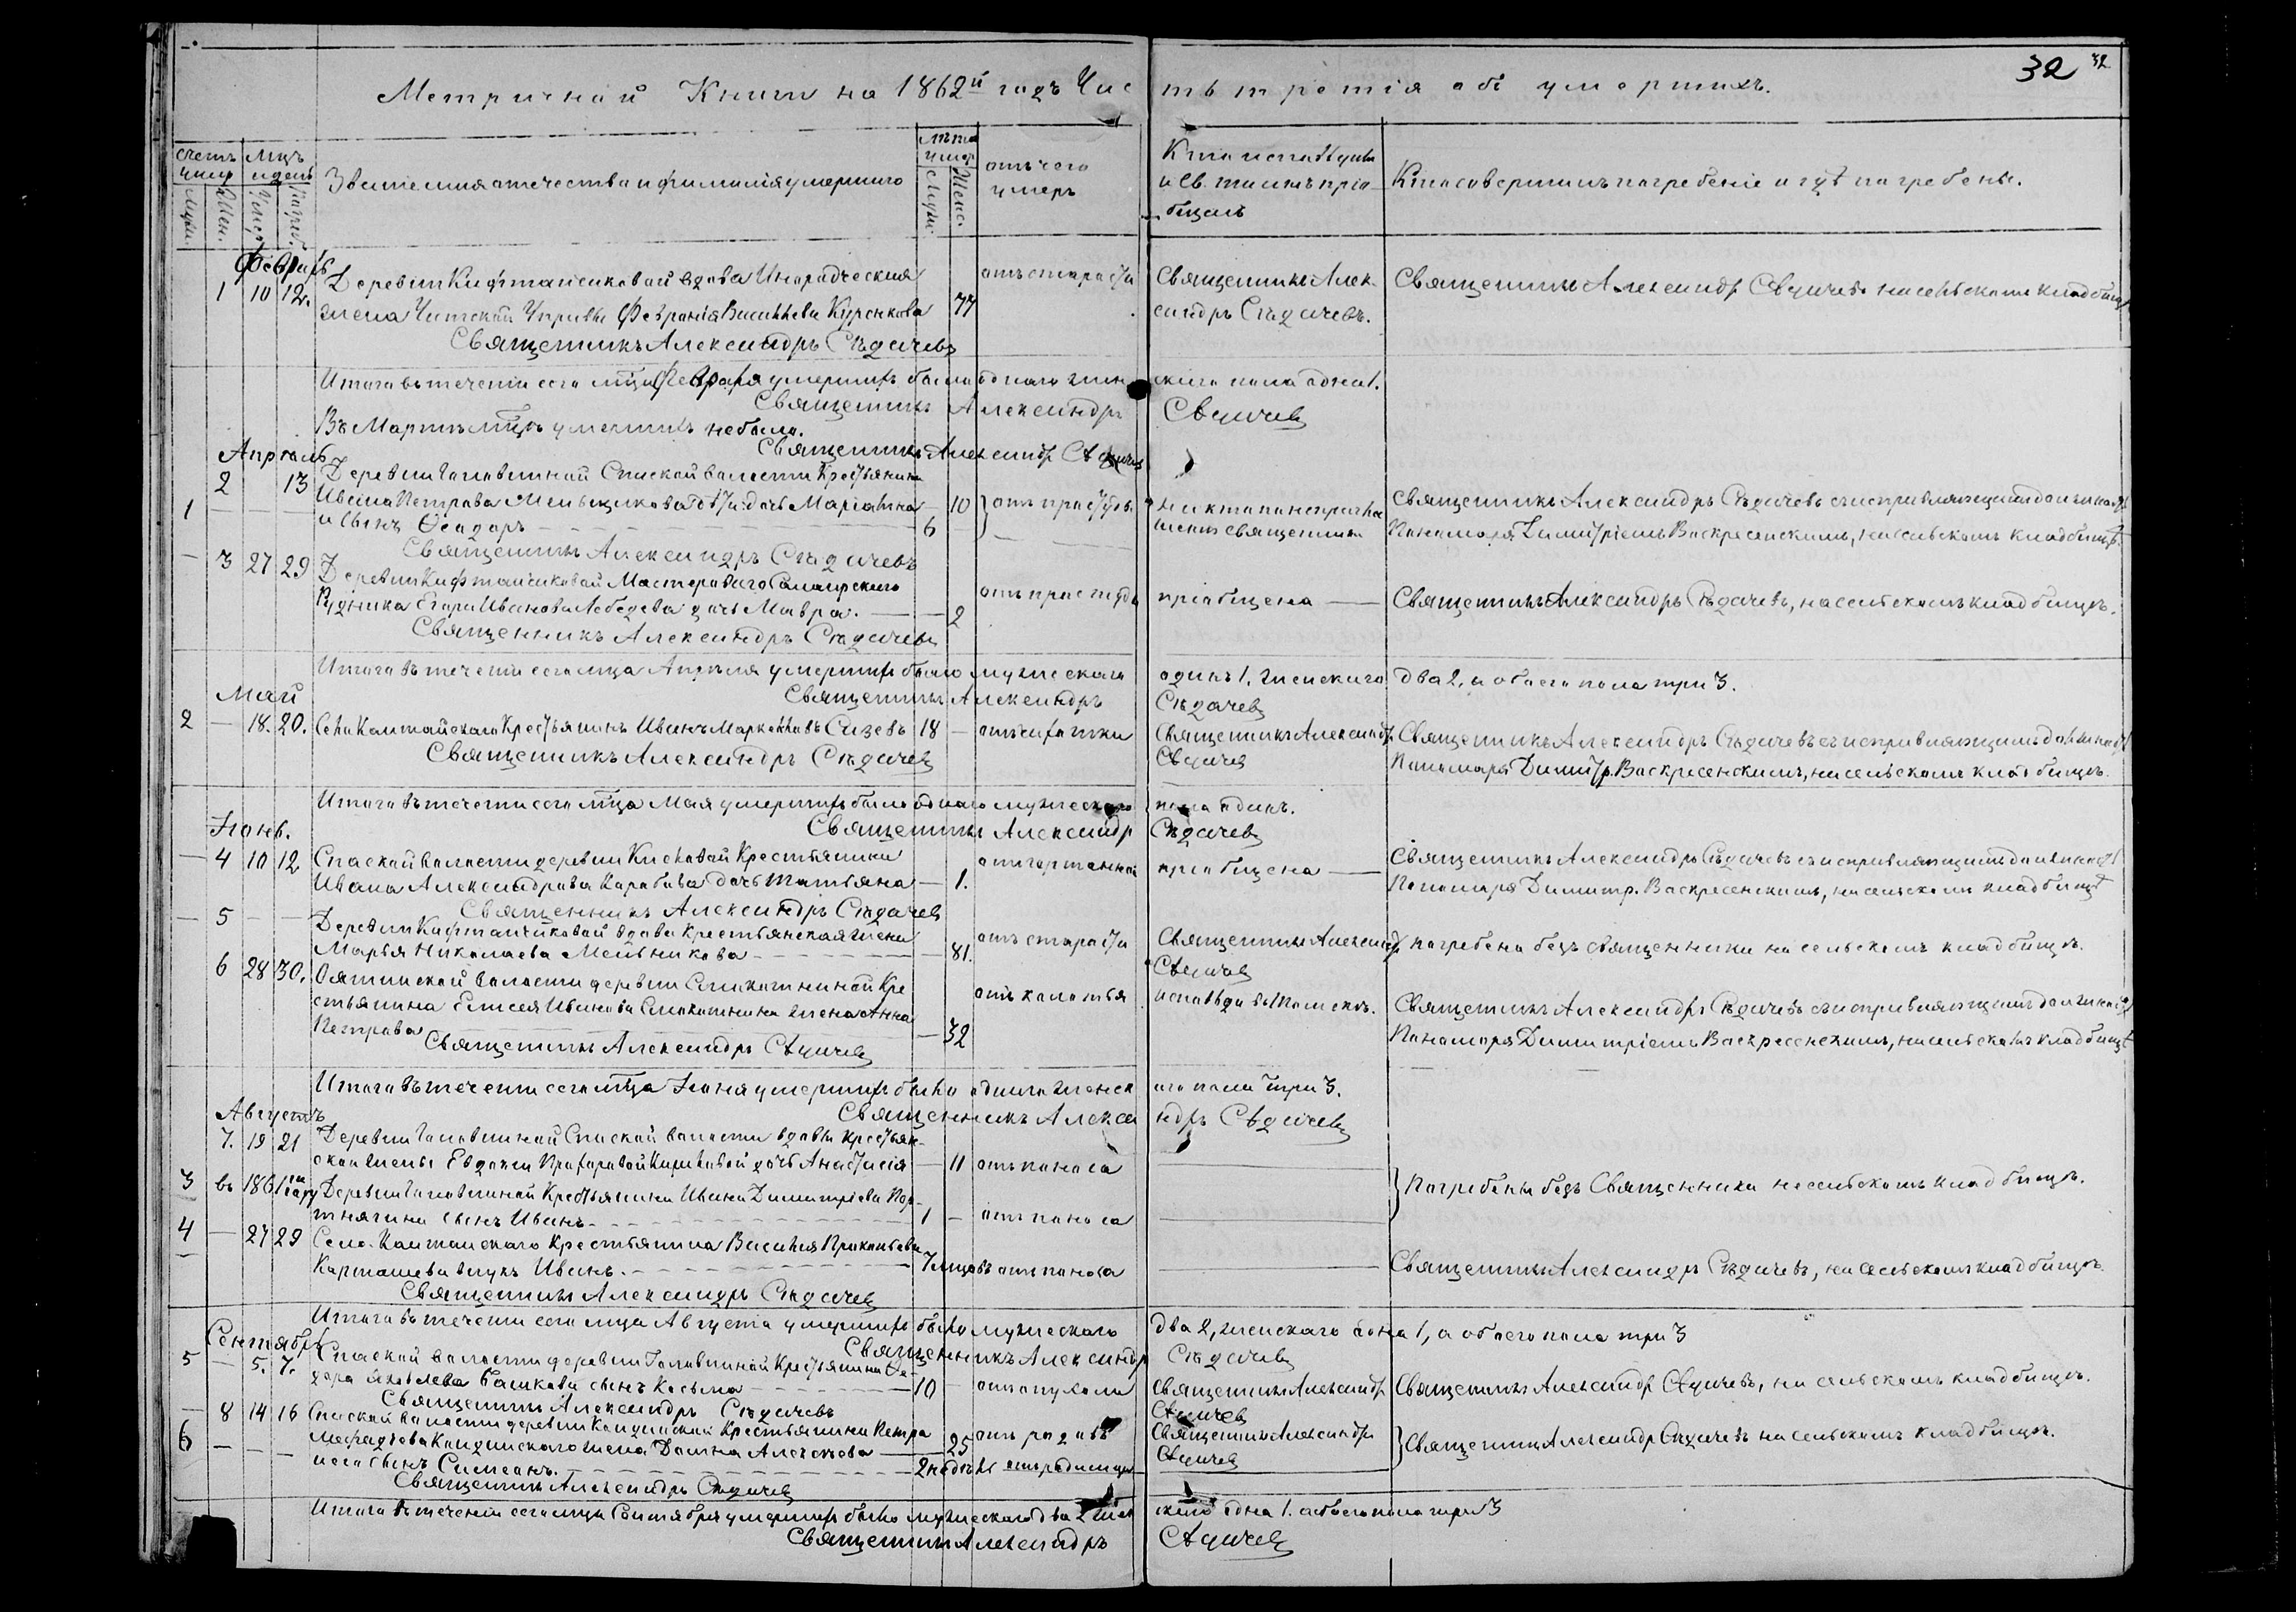 32 32
Метричной Книги на 1862й годъ Часть третія объ умершихъ.
счетъ умер
Муж. Жен.
мцъ и день
Умер. Погреб.
Званіе имя отечество и фамилія умершаго
лѣта умер
Муж. Женс.
отъ чего умеръ
Кто исповѣдывалъ и Св. таинъ пріобщалъ
Кто совершилъ погребеніе и гдѣ погребены.
Февраль
1 10 12. Деревни Кафтанчиковой вдова Инородческая отъ старости Священникъ Алек- Священникъ Александръ Сѣдачевъ на сельскомъ кладбищѣ
жена Чатской Управы Февронія Васильева Куренкова 77 сандръ Сѣдачевъ.
Священникъ Александръ Сѣдачевъ
Итого въ теченіи сего мца Февраля умершихъ было одного женскаго пола одна 1.
Священникъ Александръ Сѣдачевъ
Въ Мартѣ мцѣ умершихъ не было.
Священникъ Александръ Сѣдачевъ
Апрѣль
2 13 Деревни Головиной Спаской волости Крестьянина
Ивана Петрова Мельщикова дѣти: дочь Маріамна 10 отъ простуды Священникъ Александръ Сѣдачевъ съ исправляющимъ должность
1 и сынъ Ѳеодоръ 6 Пономаря Димитріемъ Воскресенскимъ, на сельскомъ кладбищѣ.
Священникъ Александръ Сѣдачевъ
3 27 29 Деревни Кафтанчиковой Мастероваго Салаирскаго
Рудника Егора Иванова Лебедева дочь Мавра. 2 отъ простуды пріобщена Священникъ Александръ Сѣдачевъ, на сельскомъ кладбищѣ.
Священникъ Александръ Сѣдачевъ
Итого въ теченіи сего мца Апрѣля умершихъ было мужескаго одинъ 1. женскаго два 2, а обоего пола три 3.
Священникъ Александръ Сѣдачевъ
Май
2 18. 20. Села Калтайскаго Крестьянинъ Иванъ Маркелловъ Сизевъ 18 отъ чахотки Священникъ Александръ Священникъ Александръ Сѣдачевъ съ исправляющимъ должность
Священникъ Александръ Сѣдачевъ Сѣдачевъ Пономаря Димитр. Воскресенскимъ, на сельскомъ кладбищѣ.
Итого въ теченіи сего мца Мая умершихъ было одного мужескаго пола одинъ.
Священникъ Александръ Сѣдачевъ
Іюнь.
4 10 12 Спаской волости деревни Кисловой Крестьянина
Ивана Александрова Карабова дочь Татьяна 1. отъ гортанной пріобщена Священникъ Александръ Сѣдачевъ съ исправляющимъ должность
Пономаря Димитр. Воскресенскимъ, на сельскомъ кладбищѣ
Священникъ Александръ Сѣдачевъ
5 Деревни Кафтанчиковой вдова крестьянская жена
Марья Николаева Мельникова 81. отъ старости Священникъ Александръ Сѣдачевъ погребена безъ священника на сельскомъ кладбищѣ.
6 28 30. Оятинской волости деревни Смокотниной Кре
стьянина Елисея Иванова Смокотнина жена Анна отъ колотья исповѣдана въ Томскѣ. Священникъ Александръ Сѣдачевъ съ исправляющимъ должность
Петрова 32 Пономаря Димитріемъ Воскресенскимъ, на сельскомъ кладбищѣ
Священникъ Александръ Сѣдачевъ
Итого въ теченіи сего мца Іюня умершихъ было одного женскаго пола три 3.
Священникъ Александръ Сѣдачевъ
Августъ
7. 19 21 Деревни Головиной Спаской волости вдовы крестьян-
ской жены Евдокеи Прохоровой дочь Анастасія 11 отъ поноса
3 въ 1861м году Деревни Головиной Крестьянина Ивана Димитріева Пор- Погребены безъ Священника на сельскомъ кладбищѣ.
тнягина сынъ Иванъ 1 отъ поноса
4 27 29 Села Калтайскаго Крестьянина Василья Прокопьева
Карташева внукъ Иванъ. 7 мцовъ отъ поноса Священникъ Александръ Сѣдачевъ, на сельскомъ кладбищѣ.
Священникъ Александръ Сѣдачевъ
Итого въ теченіи сего мца Августа умершихъ было мужескаго два 2, женскаго одна 1, а обоего пола три 3
Священникъ Александръ Сѣдачевъ
Сентябрь
5 5. 7. Спаской волости деревни Головиной Крестьянина Ѳе-
дора Яковлева Башкова сынъ Косьма 10 отъ опухоли Священникъ Александръ Сѣдачевъ Священникъ Александръ Сѣдачевъ, на сельскомъ кладбищѣ.
Священникъ Александръ Сѣдачевъ
8 14 16 Спаской волости деревни Кандинской Крестьянина Петра
Меѳодіева Кандинскаго жена Домна Алексѣева 25 отъ родовъ Священникъ Александръ Сѣдачевъ Священникъ Александръ Сѣдачевъ на сельскомъ кладбищѣ.
6 и сынъ Симеонъ. 2 недель отъ родимца
Священникъ Александръ Сѣдачевъ
Итого въ теченіи сего мца Сентября умершихъ было мужескаго два 2 женскаго одна 1. а обоего пола три 3
Священникъ Александръ Сѣдачевъ